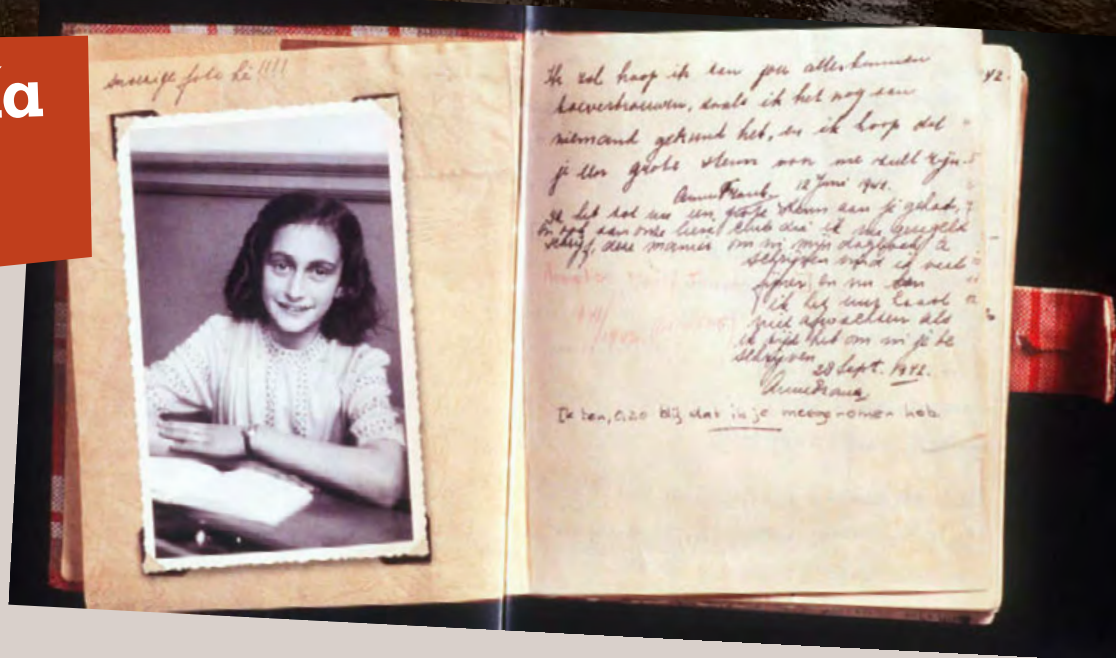 a
foto hè!!!!
42.
Ik zal hoop ik aan jou alles kunnen
toevertrouwen, zoals ik het nog aan
niemand gekund heb, en ik hoop dat
je een grote steun voor me zult zijn.
Anne Frank. 12 Juni 1942.
Ik heb tot nu een grote steun aan je gehad,
en ook aan onze lieve club die ik nu geregeld
schrijf, deze manier om in mijn dagboek te
schrijven vind ik veel
fijner en nu kan
ik het uur haast
niet afwachten als
ik tijd heb om in je te
schrijven
28 Sept. 1942.
Anne Frank
Ik ben, o, zo blij dat ik je meegenomen heb